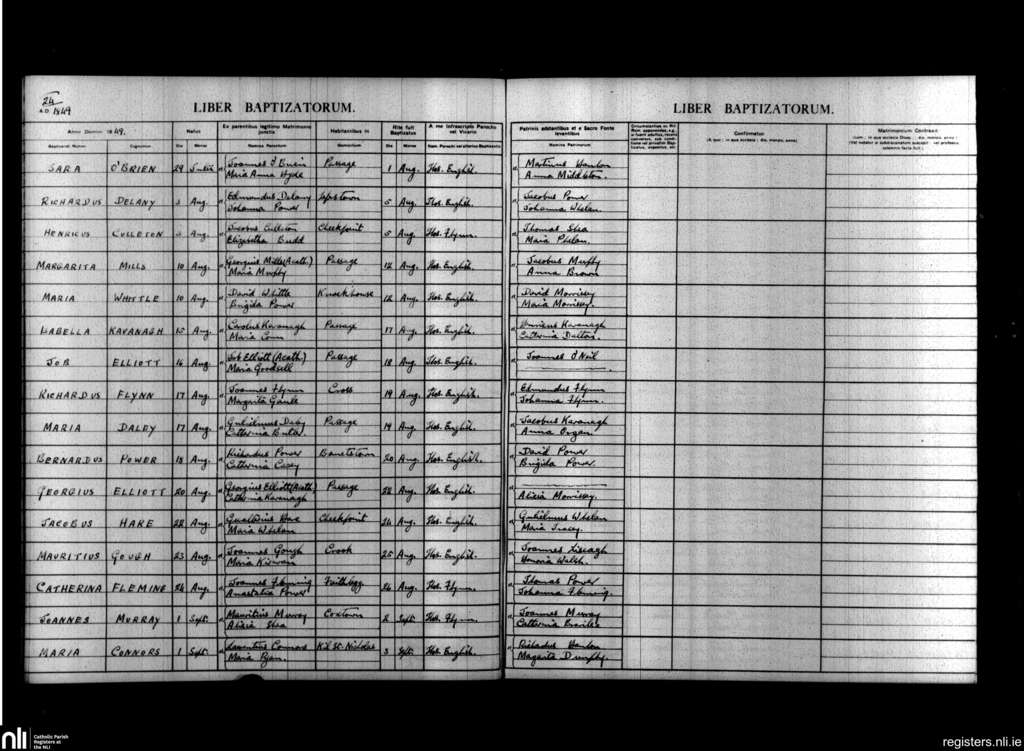 24
A D 1849
LIBER BAPTIZATORUM.
LIBER BAPTIZATORUM.
Anno Domini 1849. Natus Ex parentibus legitimo Matrimonio junctis Habitantibus in Rite fuit Baptizatus A me infrascripto Parocho vel Vicario Patrinis adstantibus et e Sacro Fonte levantibus Confirmatus Matrimonium Contraxit
Baptizati Nomen Cognomen Die Mense Nomina Parentum Domicilium Die Mense Nom. Parochi vel alterius Baptizantis Nomina Patrinorum
SARA O'BRIEN 29 Julii Joannes O'Brien Passage 1 Aug. Hos. English. Martinus Hanlon
Maria Anna Hyde Anna Middleton.
RICHARDUS DELANY 3 Aug. Edmundus Delany 5 Aug. Hos. English. Jacobus Power
Johanna Power Johanna Whelan.
HENRICUS CULLETON Aug. Jacobus Culleton Cheekpoint 5 Aug. Hos. Flynn. Thomas Shea
Elizabetha Budd Maria Phelan.
MARGARITA MILLS 10 Aug. Georgius Mills (Acath.) Passage 12 Aug. Hos. English. Jacobus Murphy
Maria Murphy Anna Brown
MARIA WHITTLE 10 Aug. David Whittle Knockhouse 12 Aug. Hos. English. David Morrissey
Brigida Power Maria Morrissey.
ISABELLA KAVANAGH 15 Aug. Carolus Kavanagh Passage 17 Aug. Hos. English. Kavanagh
Maria Catherina Dalton.
JOB ELLIOTT 16 Aug. Job Elliott (Acath.) Passage 18 Aug. Hos. English. Joannes O'Neil
Maria Goodsell
RICHARDUS FLYNN 17 Aug. Joannes Flynn Cross 19 Aug. Hos. English. Edmundus Flynn
Margarita Gaule Johanna Flynn.
MARIA DALEY 17 Aug. Gulielmus Daley Passage 19 Aug. Hos. English. Jacobus Kavanagh
Catherina Butler Anna Organ.
BERNARDUS POWER 18 Aug. Richardus Power 20 Aug. Hos. English. David Power
Catherina Casey Brigida Power.
GEORGIUS ELLIOTT 20 Aug. Georgius Elliott (Acath.) Passage 22 Aug. Hos. English.
Catherina Kavanagh Alicia Morrissey.
JACOBUS HARE 22 Aug. Gualterius Hare Cheekpoint 24 Aug. Hos. English. Gulielmus Whelan
Maria Whelan Maria Tracey.
MAURITIUS GOUGH 23 Aug. Joannes Gough Crook 25 Aug. Hos. English. Joannes
Maria Kirwan Honoria Walsh.
CATHERINA FLEMING 26 Aug. Joannes Fleming Faithlegg 26 Aug. Hos. Flynn. Thomas Power
Anastatia Power Johanna Fleming.
JOANNES MURRAY 1 Sept. Mauritius Murray Coxtown 2 Sept. Hos. Flynn. Joannes Murray
Alicia Shea Catherina
MARIA CONNORS 1 Sept. Laurentius Connors Kil St. Nicholas 3 Sept. Hos. English. Richardus Hanlon
Maria Ryan. Margarita Dunphy.
nli
Catholic Parish
Registers at
the NLI
registers.nli.ie